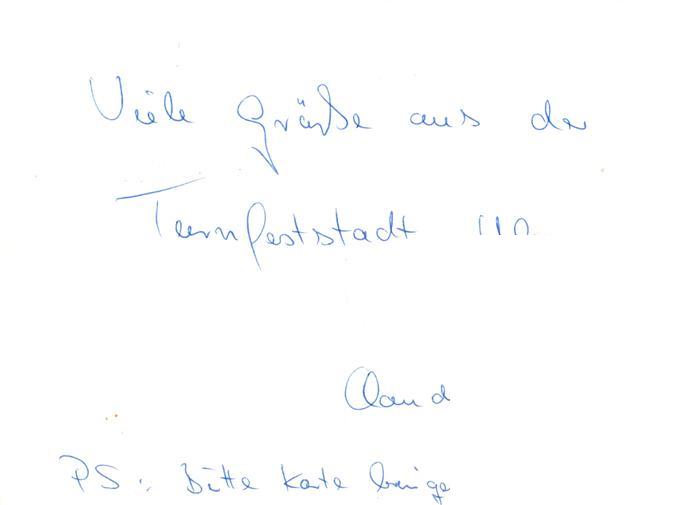 Viele Grüße aus der
Turnfeststadt !!!
Claud
PS: Bitte Karte bringe